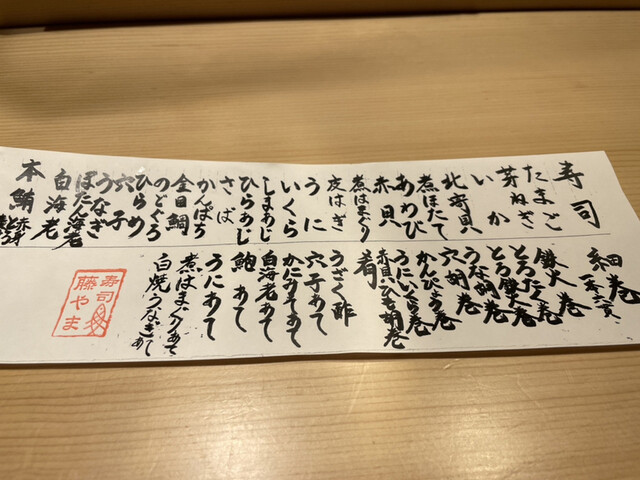 寿司
たまご
芽ねぎ
いか
北寄貝
煮ほたて
あわび
赤貝
煮はまぐり
皮はぎ
うに
いくら
しまあじ
ひらあじ
さば
かんぱち
金目鯛
のどぐろ
ひらめ
穴子
うなぎ
ぼたん海老
白海老
本鮪
細巻
鉄火巻
とろたく巻
とろ鉄火巻
うな胡巻
穴胡巻
かんぴょう巻
うにいくら巻
赤貝ひも胡巻
肴
うざく酢
穴子あて
かにみそあて
白海老あて
鮑あて
うにあて
煮はまぐりあて
白焼うなぎあて
寿司
藤やま